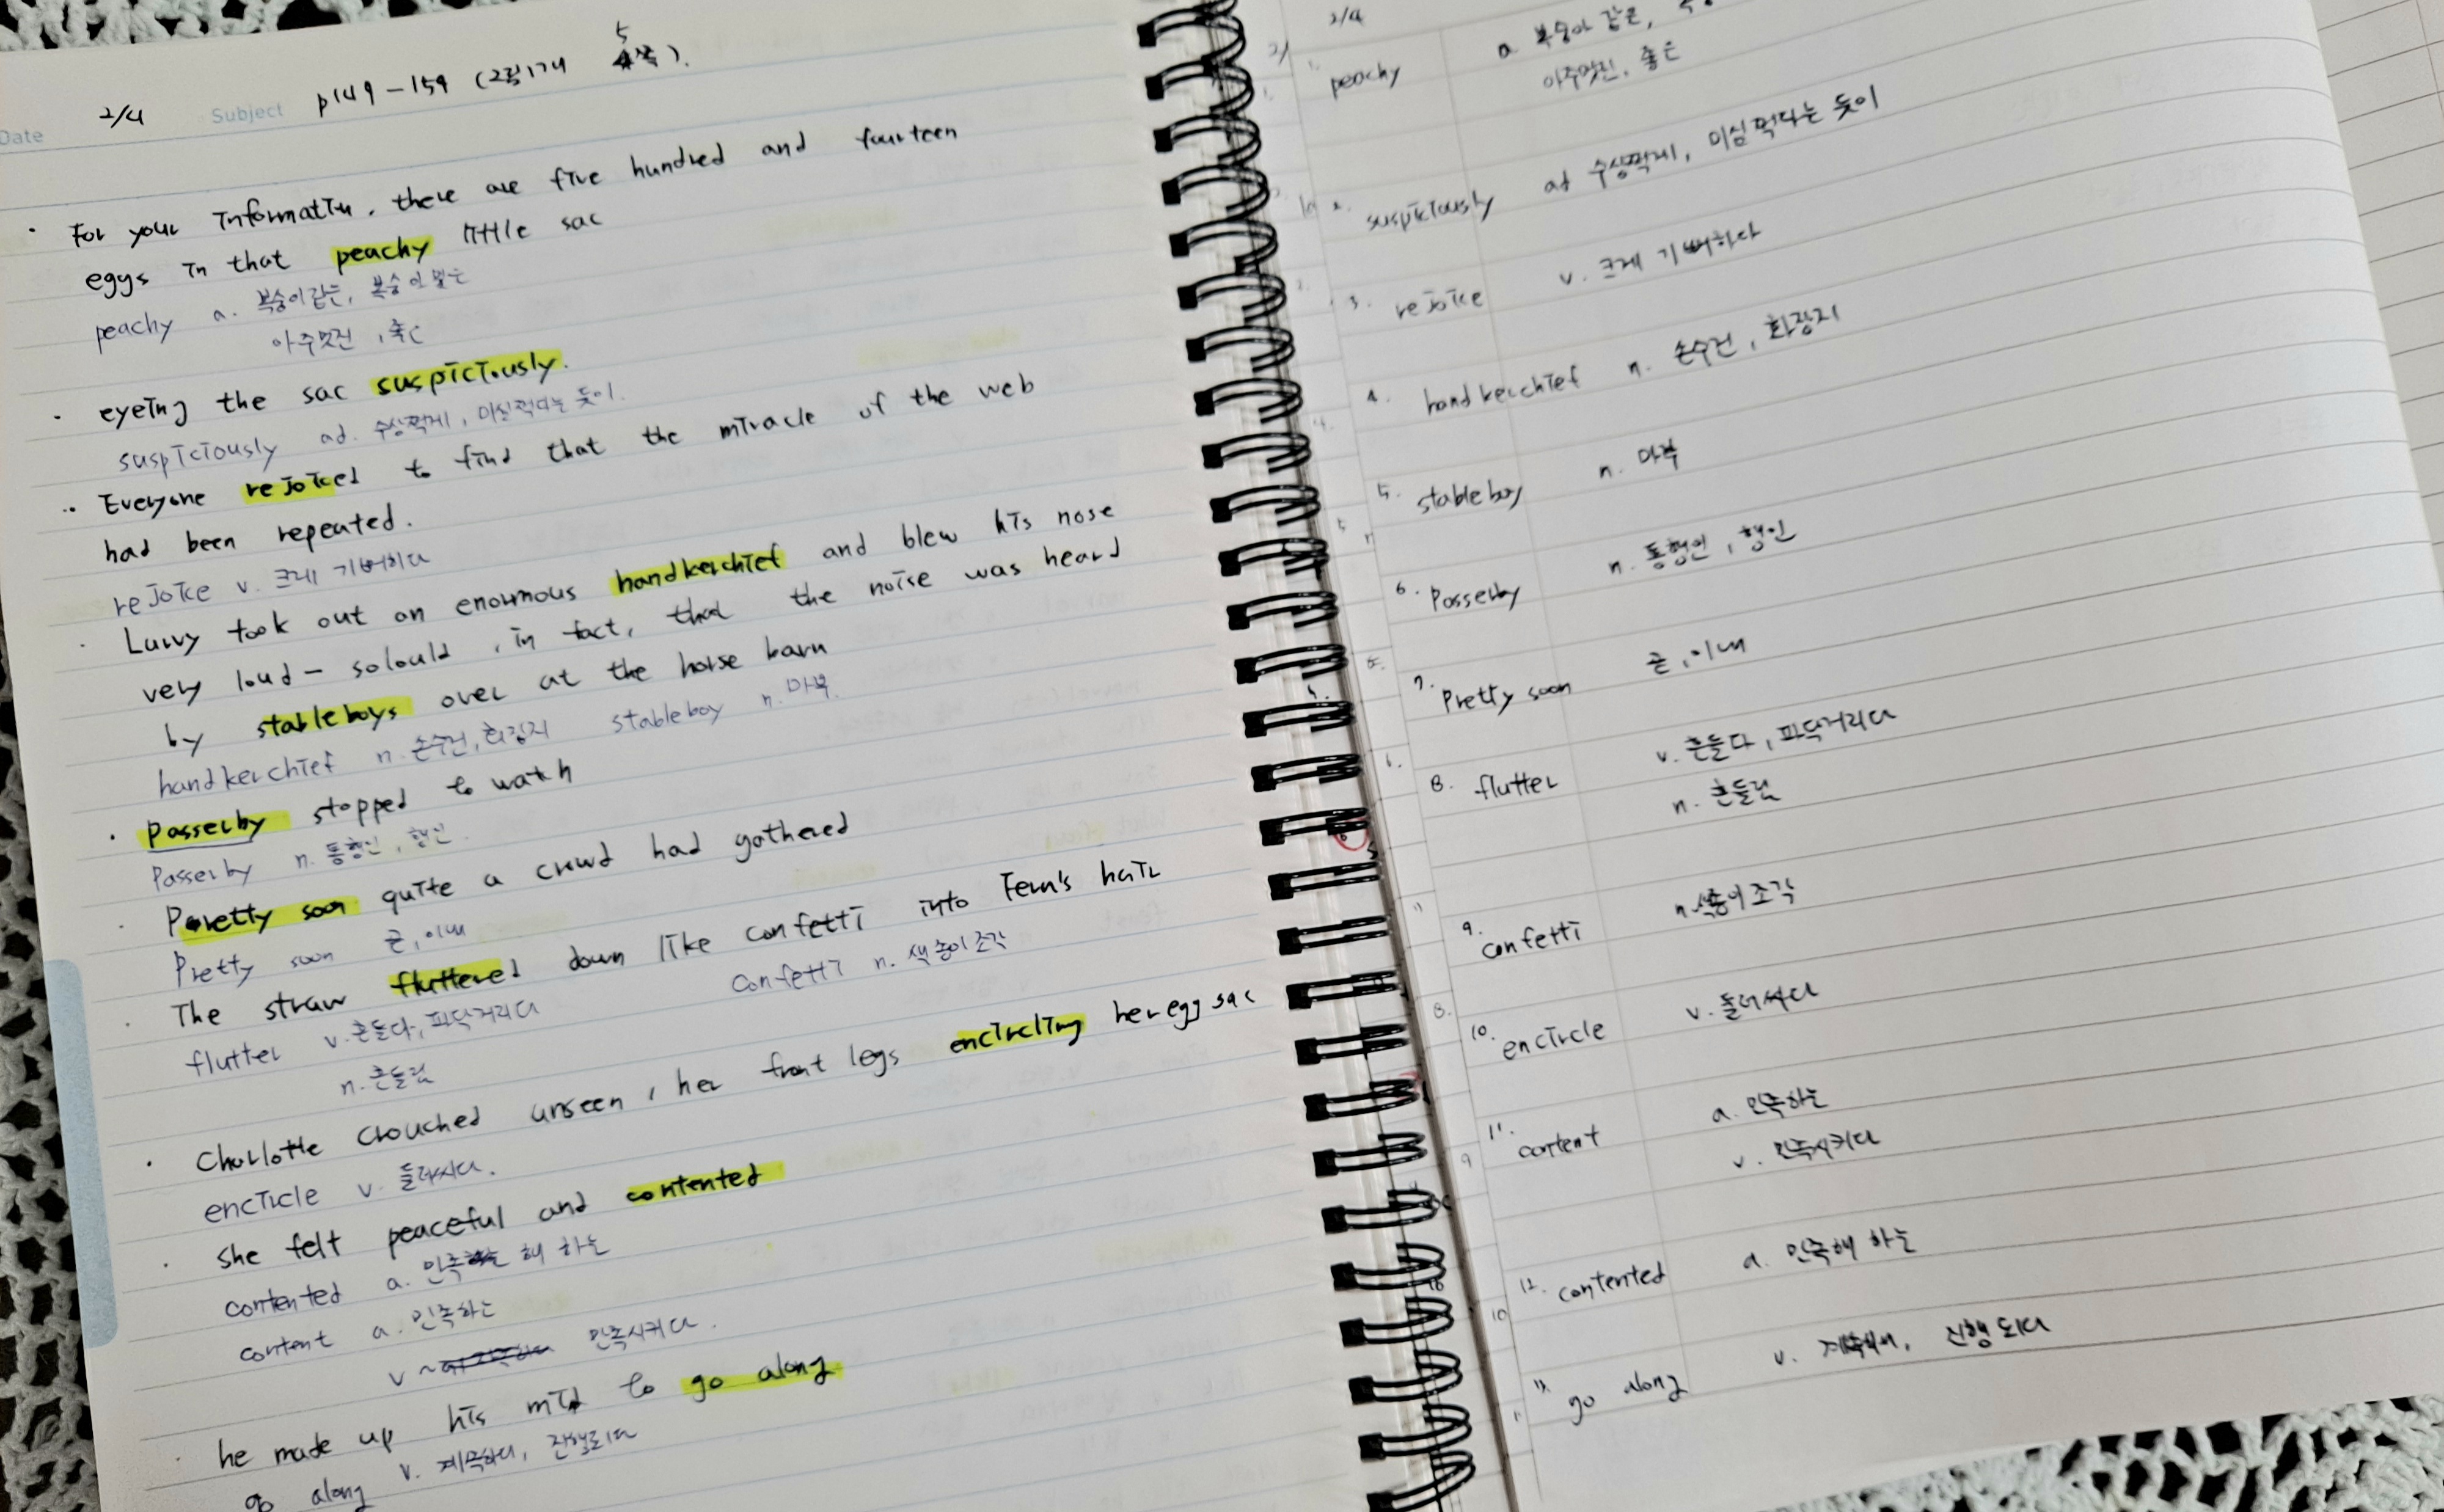 Date 2/4 Subject p149-159 (2장 17개 5쪽).
· For your information, there are five hundred and fourteen
eggs in that peachy little sac
peachy a. 복숭아같은, 복숭아 빛은
아주멋진, 좋
· eyeing the sac suspiciously.
suspiciously ad. 수상쩍게, 미심쩍다는 듯이.
·· Everyone rejoiced to find that the miracle of the web
had been repeated.
rejoice v. 크게 기뻐하다
· Lurvy took out an enormous handkerchief and blew his nose
very loud - so loud, in fact, that the noise was heard
by stableboys over at the horse barn
handkerchief n. 손수건, 화장지 stableboy n. 마부.
· Passerby stopped to watch
Passerby n. 통행인, 행인.
· Pretty soon quite a crowd had gathered
Pretty soon 곧, 이내
· The straw fluttered down like confetti into Fern's hair
flutter v. 흔들다, 파닥거리다 confetti n. 색종이 조각
n. 흔들림
· Charlotte crouched unseen, her front legs encircling her egg sac
encircle v. 둘러싸다.
· she felt peaceful and contented
contented a. 만족해 하는
content a. 만족하는
v 만족시키다.
· he made up his mid to go along
go along v. 계속하다, 진행되다
2/4
1. peachy a 복숭아 같은,
아주멋진, 좋은
2. suspiciously ad 수상쩍게, 미심쩍다는 듯이
3. rejoice v. 크게 기뻐하다
4. handkerchief n. 손수건, 화장지
5. stableboy n. 마부
6. Passerby n. 통행인, 행인
7. Pretty soon 곧, 이내
8. flutter v. 흔들다, 파닥거리다
n. 흔들림
9. confetti n. 색종이 조각
10. encircle v. 둘러싸다
11. content a. 만족하는
v. 만족시키다
12. contented a. 만족해 하는
13. go along v. 계속해서, 진행되다